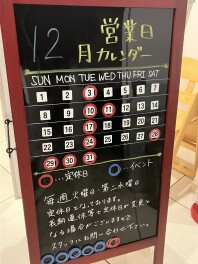 12 営業日
月カレンダー
SUN MON TUE WED THU FRI SAT
1 2 3 4 5 6 7
8 9 10 11 12 13 14
15 16 17 18 19 20 21
22 23 24 25 26 27 28
29 30 31
…定休日 …イベント
毎週火曜日、第二水曜日
定休日となっております。
長期連休等で定休日が変更と
なる場合がございますので
スタッフにお問い合わせ下さい。